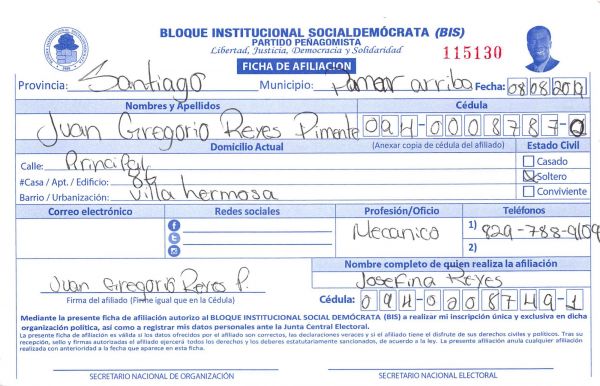 BLOQUE INSTITUCIONAL SOCIALDEMÓCRATA (BIS)
PARTIDO PEÑAGOMISTA
Libertad, Justicia, Democracia y Solidaridad
115130
FICHA DE AFILIACION
Provincia: Santiago Municipio: arriba Fecha: 08082019
Nombres y Apellidos Cédula
Juan Gregorio Reyes Pimente 094-0008787-0
Domicilio Actual (Anexar copia de cédula del afiliado) Estado Civil
Calle: Principal Casado
#Casa / Apt. / Edificio: Soltero
Barrio / Urbanización: Villa hermosa Conviviente
Correo electrónico Redes sociales Profesión/Oficio Teléfonos
Mecanico 1) 829-788-9109
2)
Nombre completo de quien realiza la afiliación
Juan Gregorio Reyes P. Josefina Reyes
Firma del afiliado (Firme igual que en la Cédula) Cédula: 094-0008749-1
Mediante la presente ficha de afiliación autorizo al BLOQUE INSTITUCIONAL SOCIAL DEMÓCRATA (BIS) a realizar mi inscripción única y exclusiva en dicha
organización política, así a registrar mis datos personales ante la Junta Central Electoral.
La presente ficha de afiliación es válida si los datos ofrecidos por el afiliado son correctos, las declaraciones veraces y si el afiliado tiene el disfrute de sus derechos civiles y políticos. Tras su
recepción, sello y firmas autorizadas el afiliado ejercerá todos los derechos y los deberes estatutariamente sancionados, de acuerdo a la ley. La presente afiliación anula cualquier afiliación
realizada con anterioridad a la fecha que aparece en esta ficha.
SECRETARIO NACIONAL DE ORGANIZACIÓN SECRETARIO NACIONAL ELECTORAL